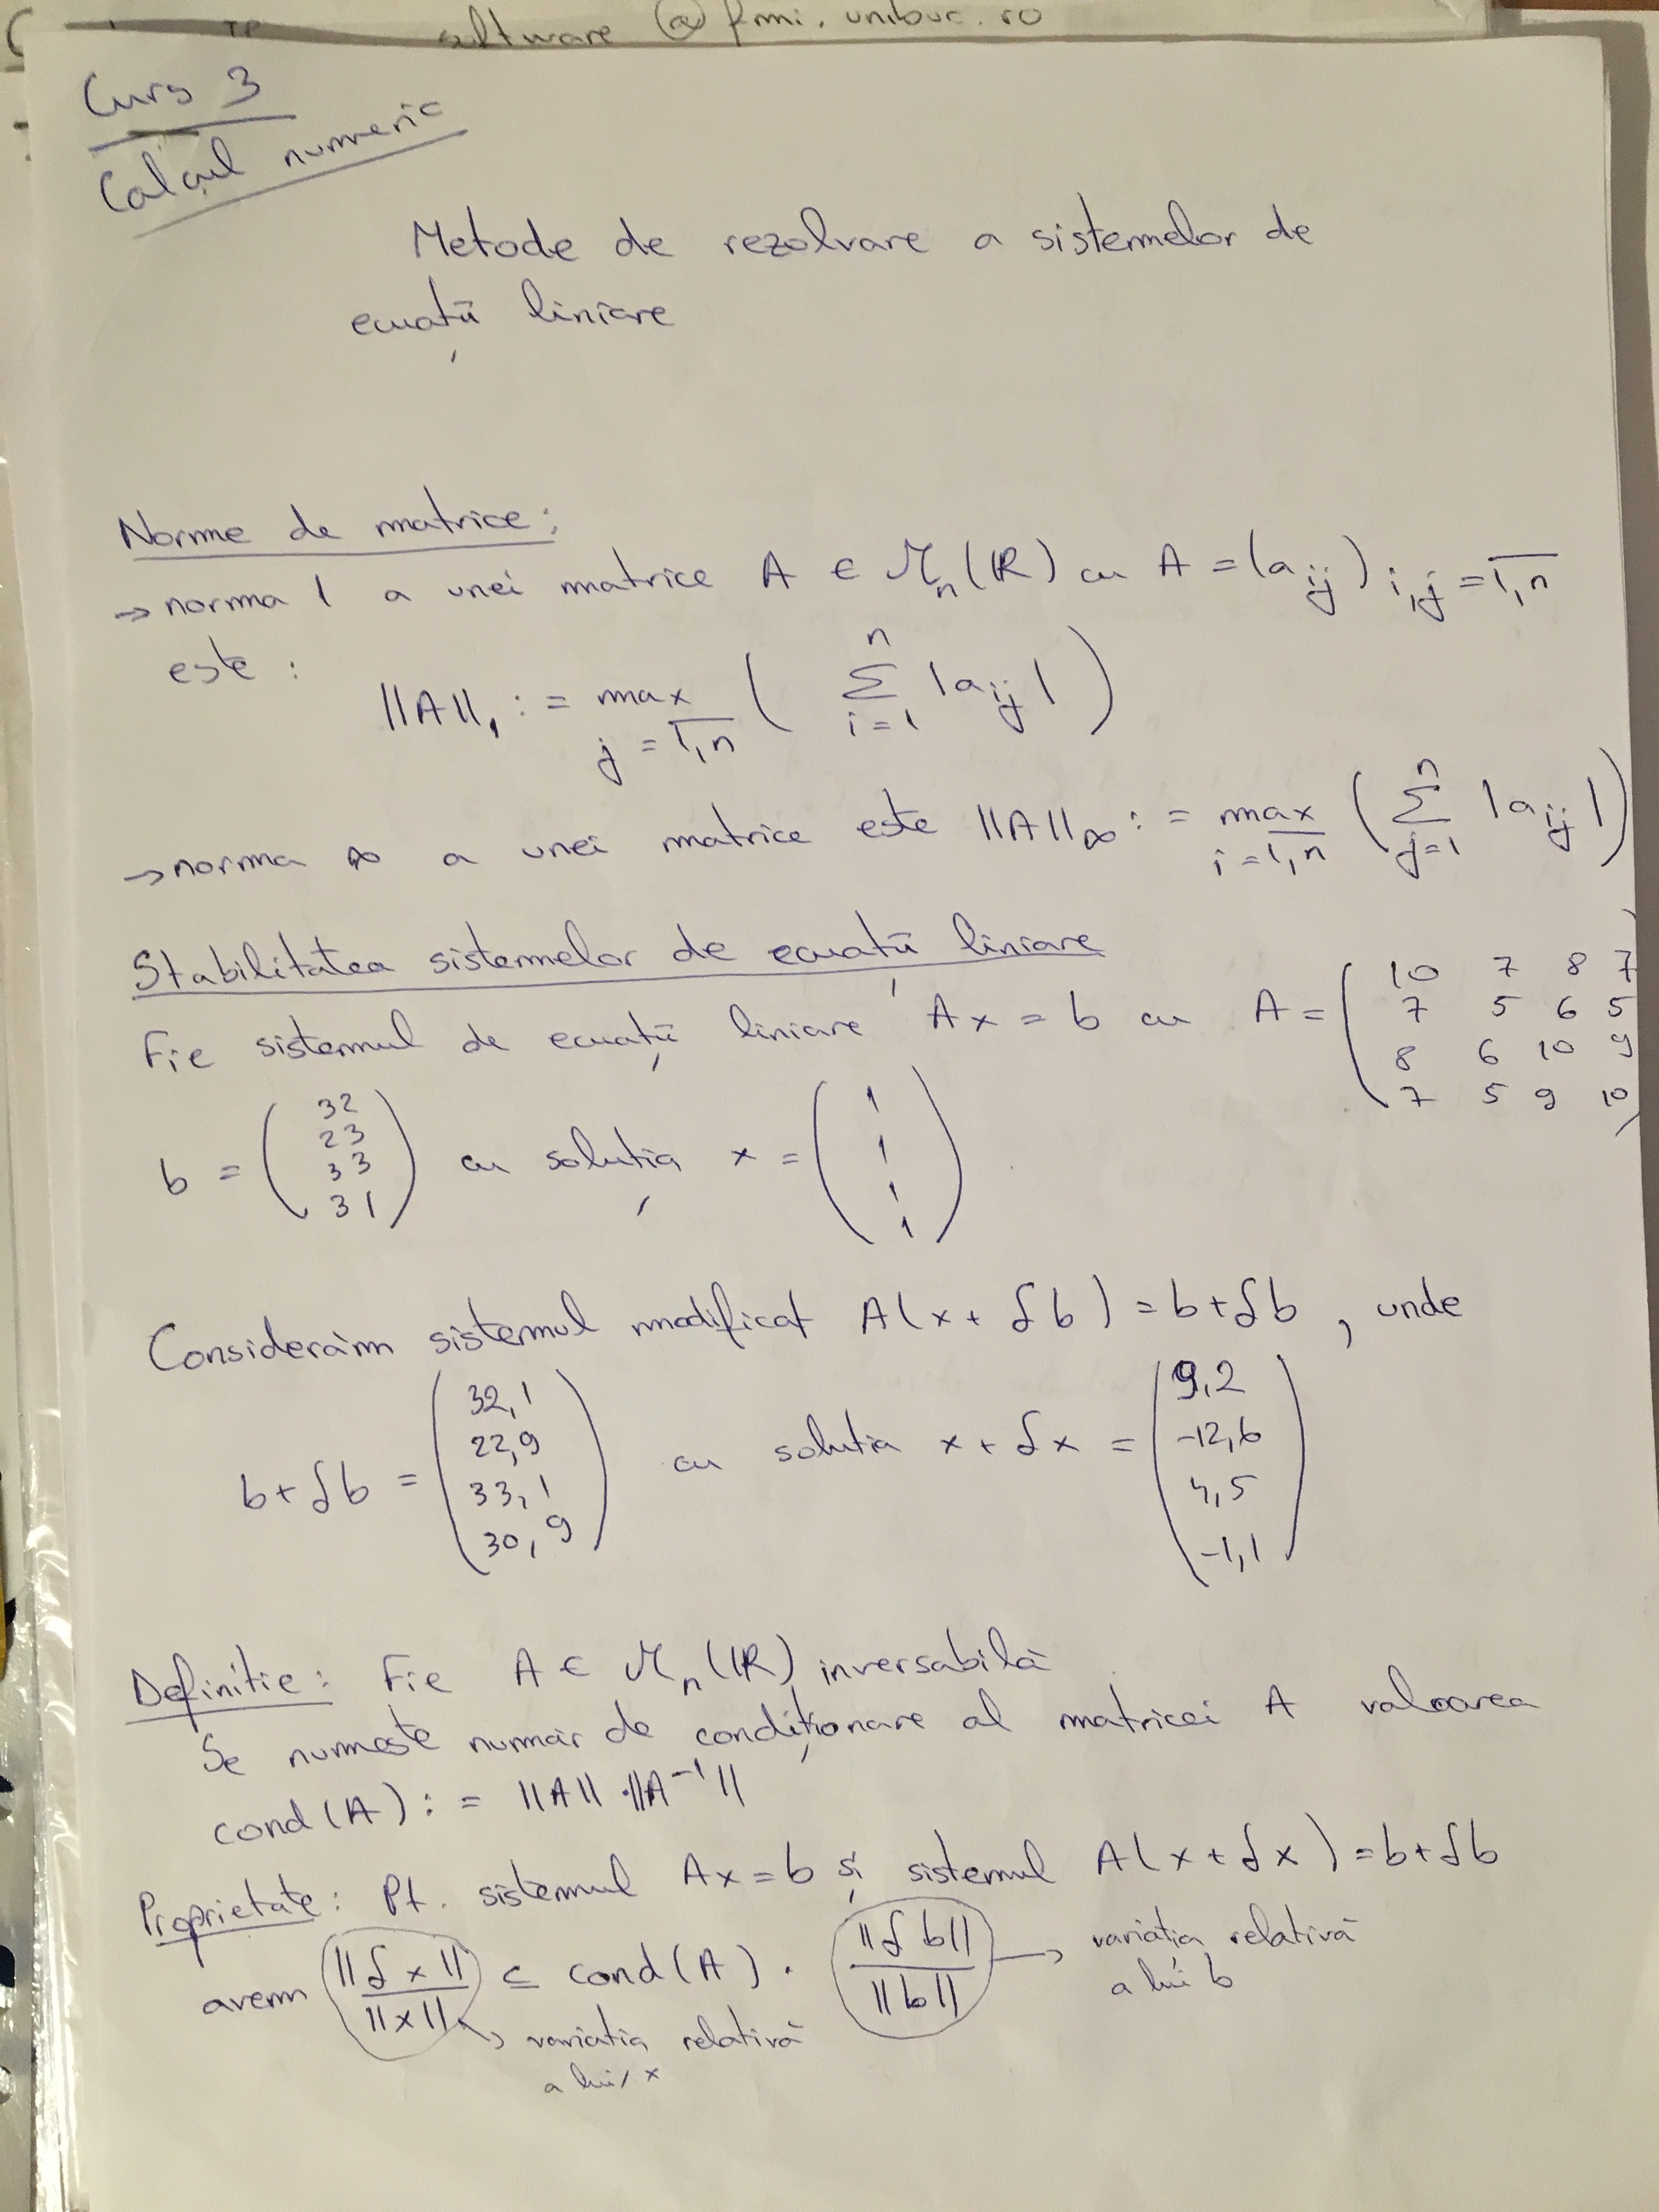 software @ fmi.unibuc.ro
Curs 3
Calcul numeric
Metode de rezolvare a sistemelor de
ecuații liniare
Norme de matrice:
→ norma 1 a unei matrice A ∈ ℳₙ(ℝ) cu A = (a_ij) i,j = \overline{1,n}
este :
||A||₁ := max_{j = \overline{1,n}} ( ∑_{i=1}^{n} |a_ij| )
→ norma ∞ a unei matrice este ||A||∞ := max_{i = \overline{1,n}} ( ∑_{j=1}^{n} |a_ij| )
Stabilitatea sistemelor de ecuații liniare
Fie sistemul de ecuații liniare Ax = b cu A = ( 10 7 8 7
7 5 6 5
8 6 10 9
7 5 9 10 )
b = ( 32
23
33
31 ) cu soluția x = ( 1
1
1
1 )
Considerăm sistemul modificat A(x + δb) = b + δb , unde
b + δb = ( 32,1
22,9
33,1
30,9 ) cu soluția x + δx = ( 9,2
-12,6
4,5
-1,1 )
Definitie: Fie A ∈ ℳₙ(ℝ) inversabilă
Se numește număr de condiționare al matricei A valoarea
cond(A) := ||A|| · ||A⁻¹||
Proprietate: Pt. sistemul Ax = b și sistemul A(x + δx) = b + δb
avem ||δx|| / ||x|| ≤ cond(A) · ||δb|| / ||b|| → variația relativă
a lui b
→ variatia relativă
a lui x